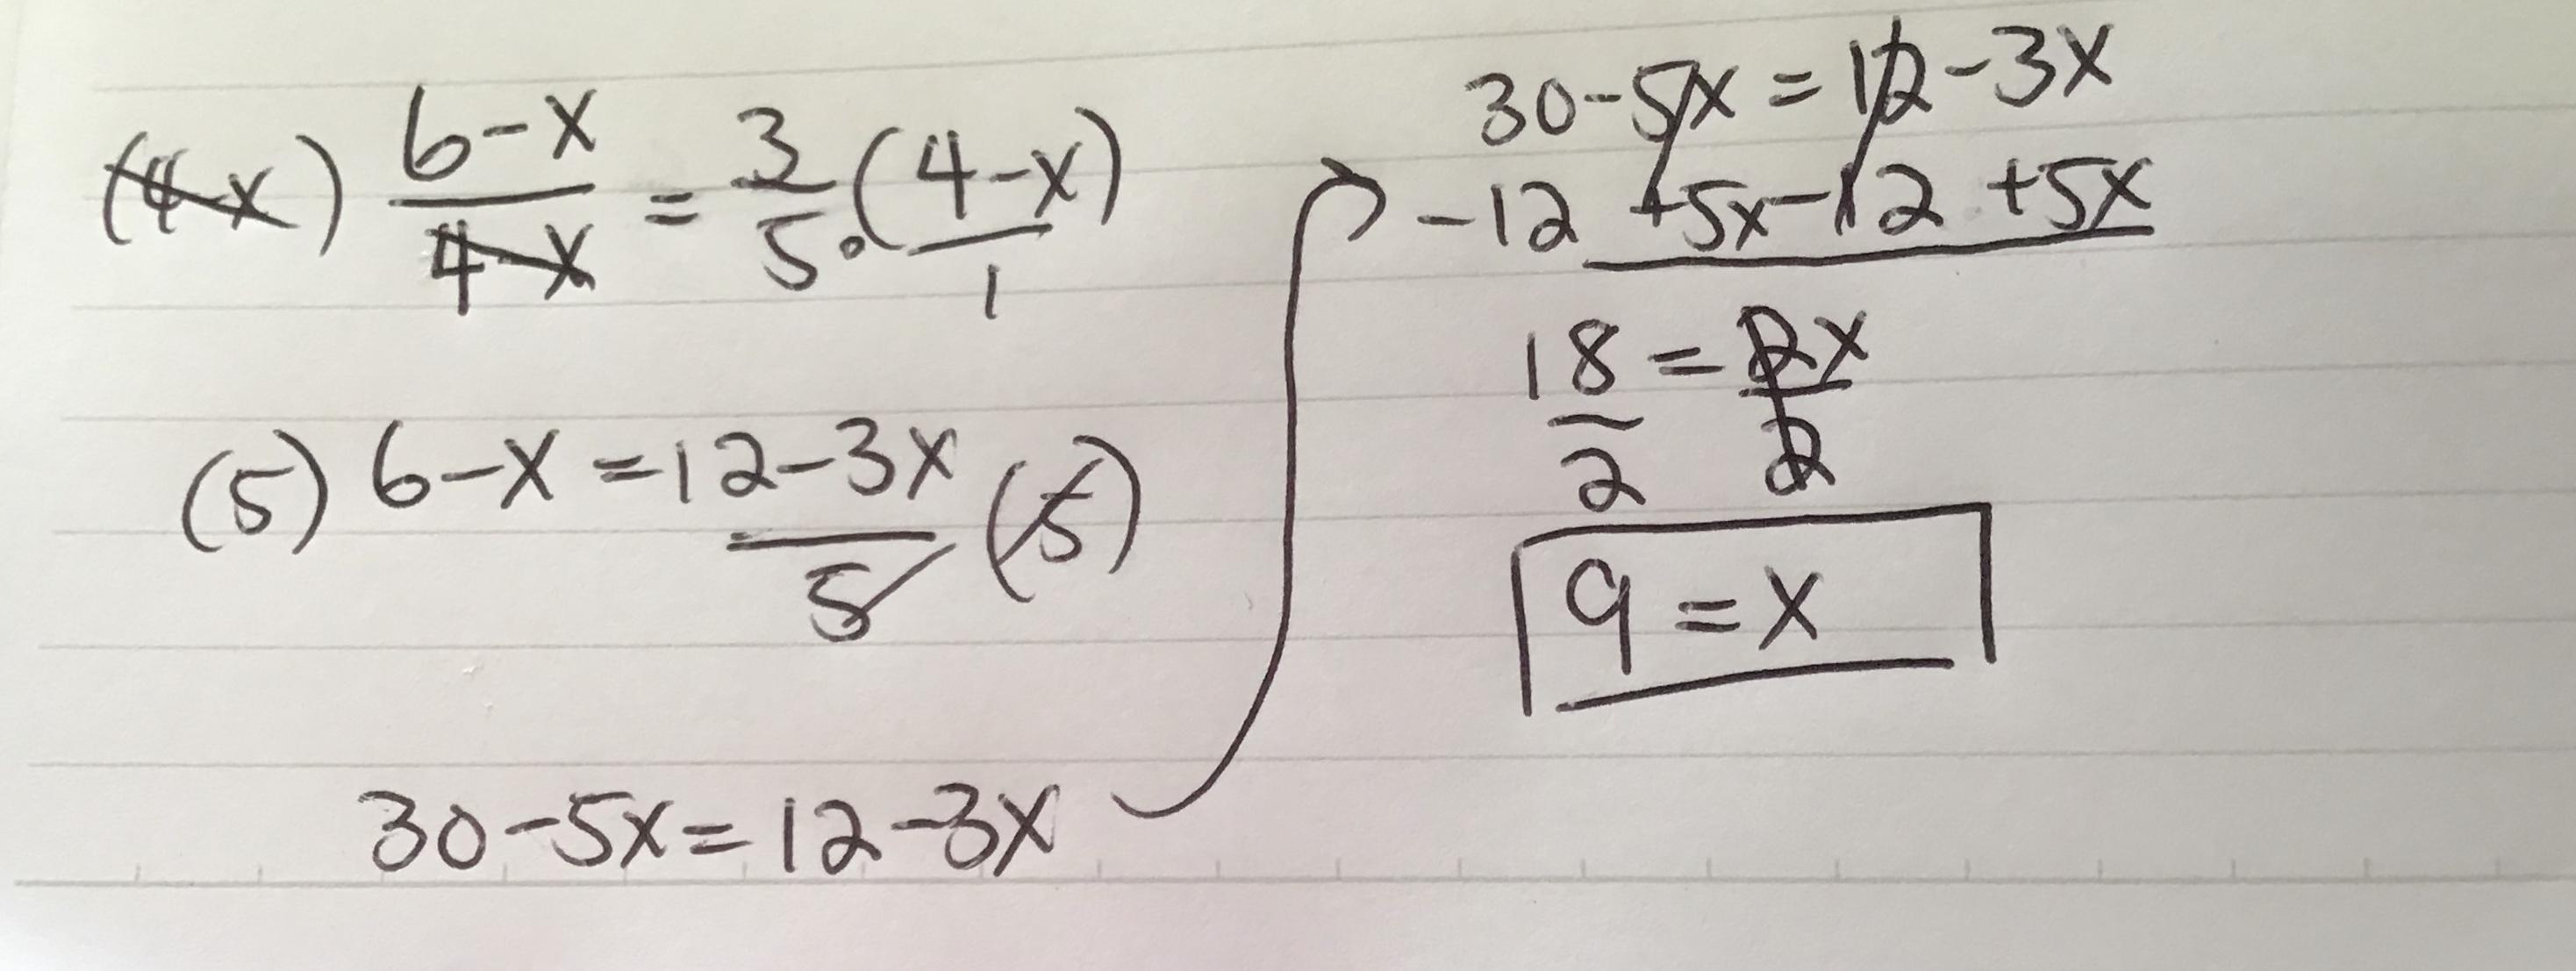 (4-x) 6-x/4-x = 3/5 · (4-x)/1
(5) 6-x = 12-3x/5 (5)
30-5x = 12-3x
30-5x = 12-3x
-12 +5x -12 +5x
18/2 = 2x/2
9 = x